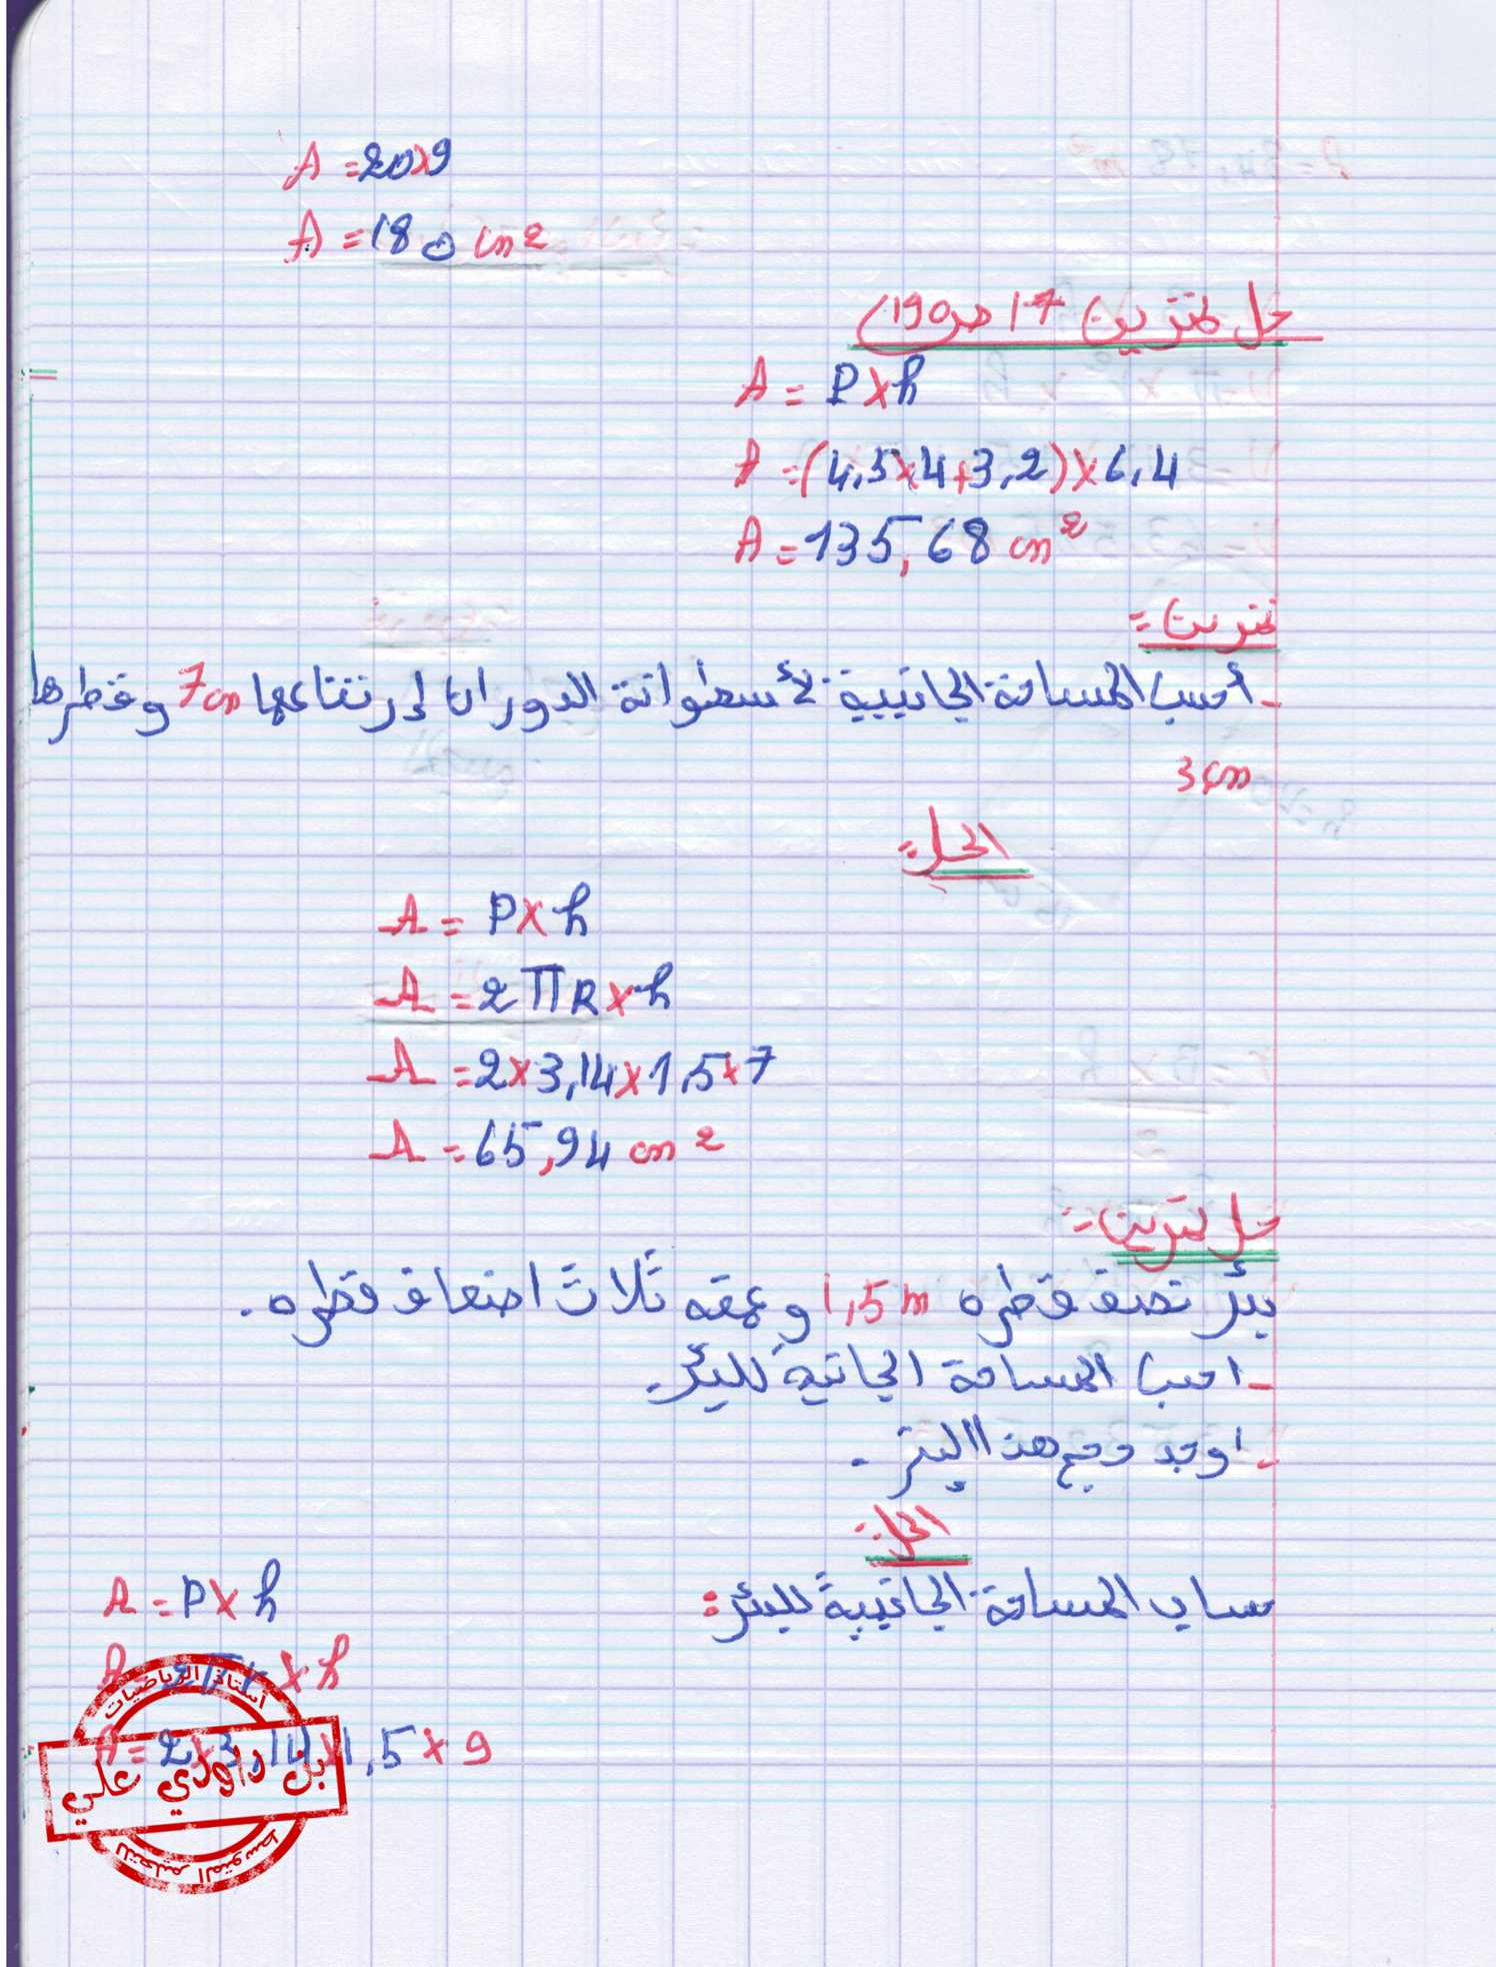 A = 20×9
A = 180 cm²
حل تمرين 17 ص190)
A = P×h
A = (4,5×4+3,2)×6,4
A = 135,68 cm²
تمرين =
- أحسب المساحة الجانبية لأسطوانة الدوران إرتفاعها 7cm وقطرها
3cm
الحل =
A = P×h
A = 2πR×h
A = 2×3,14×1,5×7
A = 65,94 cm²
حل تمرين =
بئر نصف قطره 1,5m وعمقه ثلاث اضعاف قطره.
- احسب المساحة الجانبية للبئر.
- اوجد حجم هذا البئر.
الحل:
حساب المساحة الجانبية للبئر:
A = P×h
A = 2πr×h
A = 2×3,14×1,5×9
أستاذ الرياضيات
بن داودي علي
للتعليم المتوسط